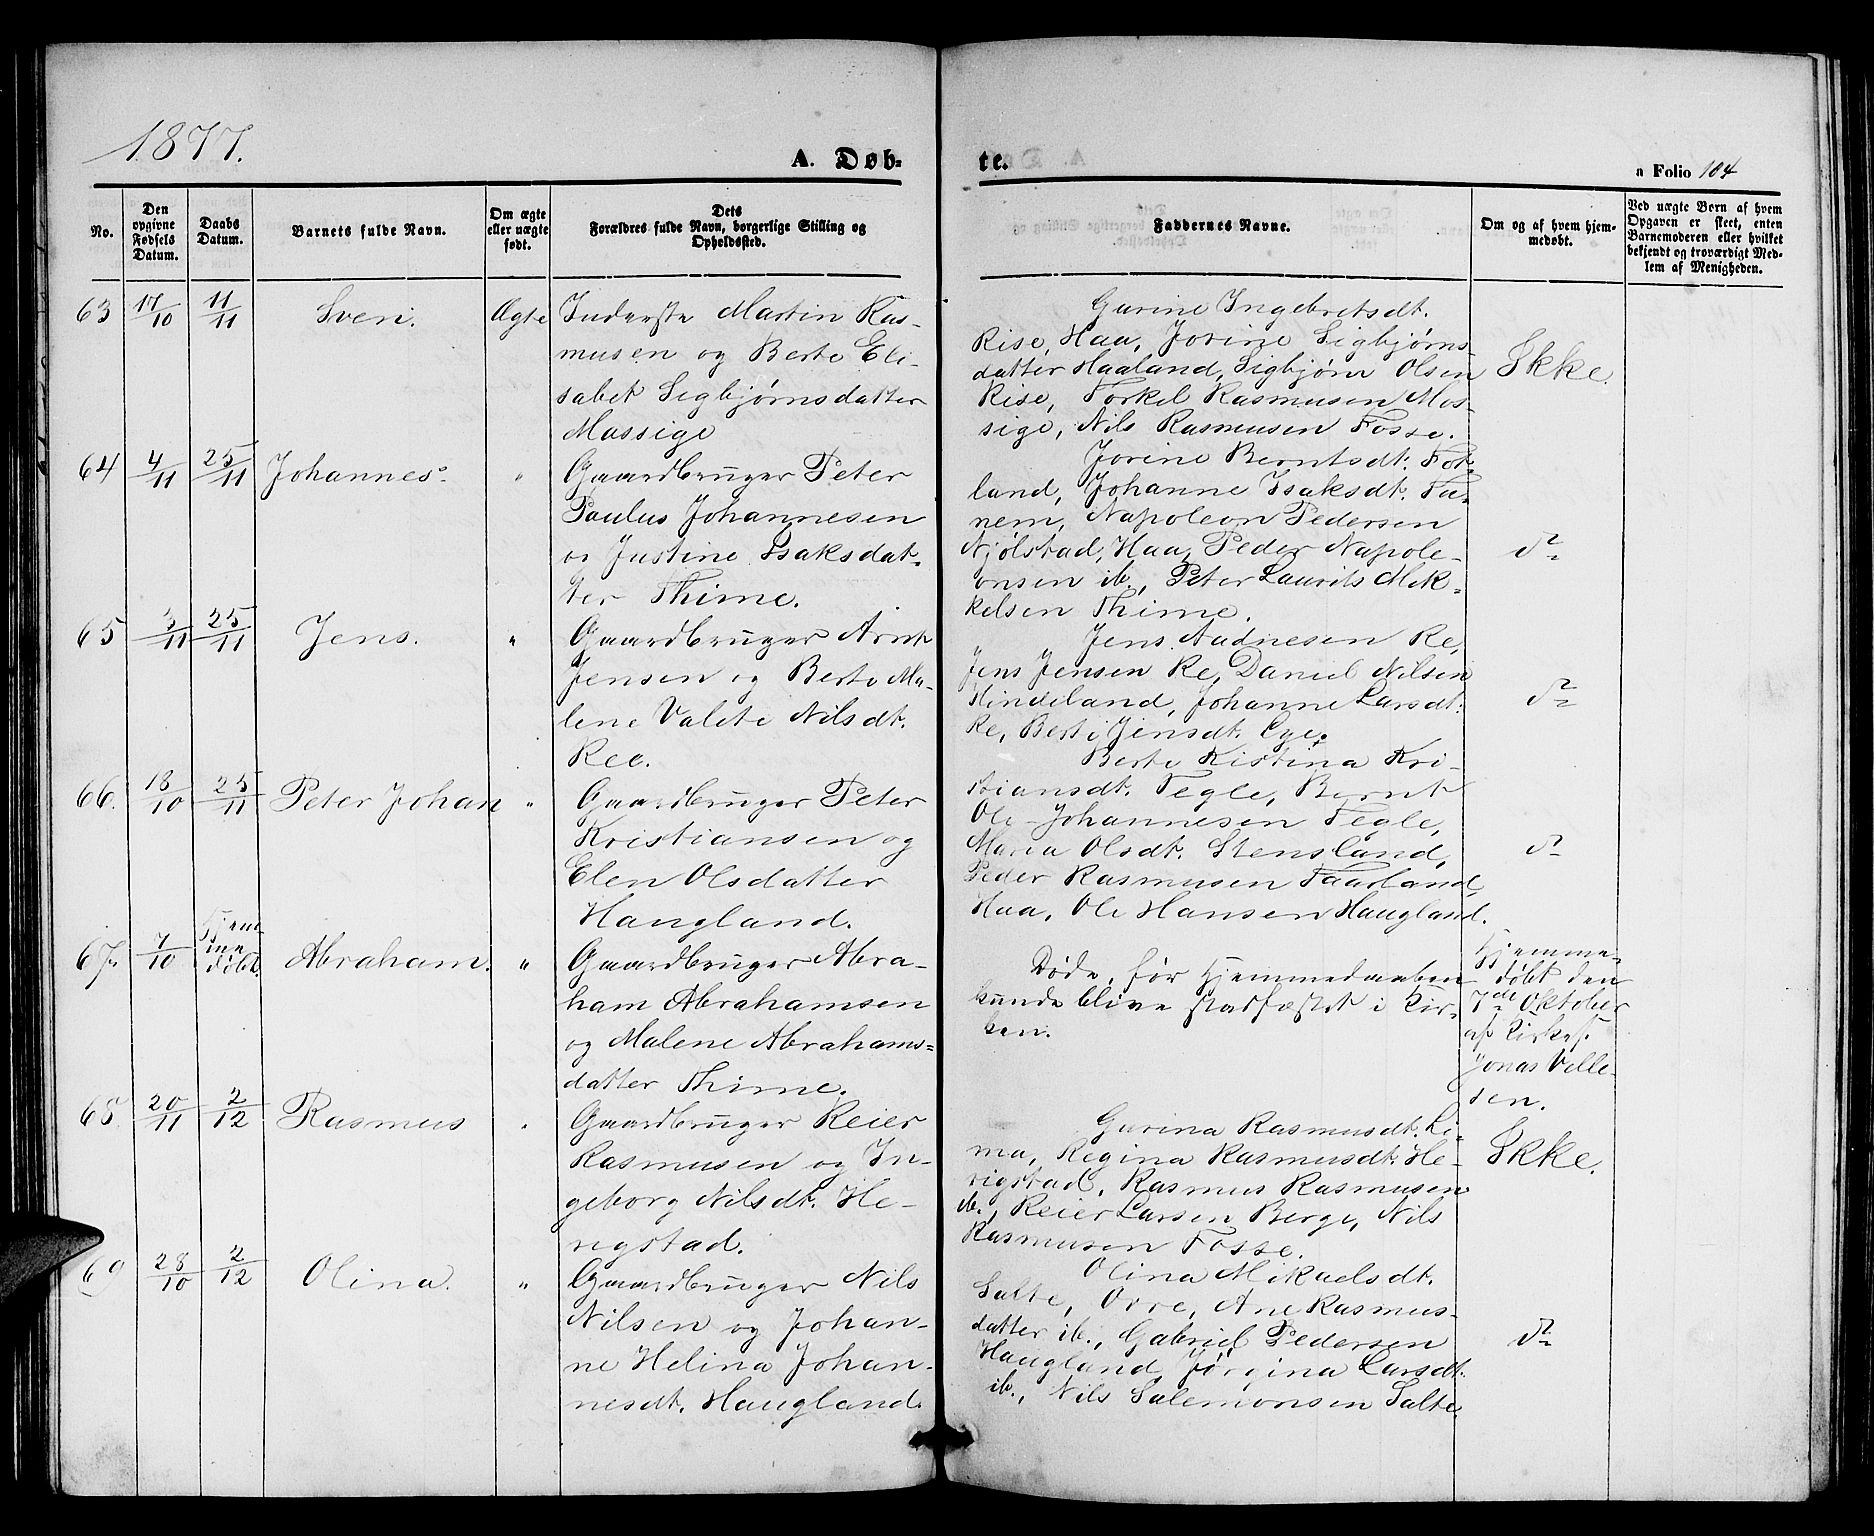 1877.
A. Døb-
te.
n Folio 104
No.
Den
opgivne
Fødsels
Datum.
Daabs
Datum.
Barnets fulde Navn.
Om ægte
eller uægte
født.
Dets
Forældres fulde Navn, borgerlige Stilling og
Opholdssted.
Faddernes Navne.
Om og af hvem hjem-
medøbt.
Ved uægte Børn af hvem
Opgaven er skeet, enten
Barnemoderen eller hvilket
bekjendt og troværdigt Med-
lem af Menigheden.
63 17/10 11/11 Sven. Ægte
Inderste Martin Ras-
musen og Berte Eli-
sabet Sigbjørnsdatter
Mossige
Gurine Ingebretsdt.
Rise, Haa, Jorine Sigbjørns-
datter Haaland, Sigbjørn Olsen
Rise, Torkel Rasmusen Mos-
sige, Nils Rasmusen Fosse.
Ikke.
64 4/11 25/11 Johannes. "
Gaardbruger Peter
Paulus Johannesen
og Justine Isaksdat-
ter Thime.
Jorine Berntsdt. Fot-
land, Johanne Isaksdt. Tu-
nem, Napoleon Pedersen
Njølstad, Haa, Peder Napole-
onsen ib., Peter Laurits Mik-
kelsen Thime.
do
65 3/11 25/11 Jens. "
Gaardbruger Arnt
Jensen og Berte Ma-
lene Valete Nilsdt.
Ree.
Jens Aadnesen Re,
Jens Jensen Re, Daniel Nilsen
Hindeland, Johanne Larsdt.
Re, Berte Jensdt. Ege.
do
66. 18/10 25/11 Peter Johan "
Gaardbruger Peter
Kristiansen og
Elen Olsdatter
Haugland.
Berte Kistina Kri-
stiansdt. Tegle, Bernt
Ole Johannesen Tegle,
Maria Olsdt. Stensland,
Peder Rasmusen Taarland
Haa, Ole Hansen Haugland.
do
67. 7/10 Hjem-
me
døbt. Abraham. "
Gaardbruger Abra-
ham Abrahamsen
og Malene Abrahams-
datter Thime.
Døde, før Hjemmedaaben
kunde blive stadfæstet i Kir-
ken.
Hjemme-
døbt den
7de Oktober
af Kirkes.
Jonas Velle-
sen.
68. 20/11 2/12 Rasmus "
Gaardbruger Reier
Rasmusen og In-
geborg Nilsdt. He-
rigstad.
Gurina Rasmusdt. Li-
ma, Regina Rasmusdt. He-
rigstad, Rasmus Rasmusen
ib., Reier Larsen Berge, Nils
Rasmusen Fosse.
Ikke.
69 28/10 2/12 Olina. "
Gaardbruger Nils
Nilsen og Johan-
ne Helina Johan-
nesdt. Haugland.
Olina Mikaelsdt.
Salte, Orre, Ane Rasmus-
datter ib., Gabriel Pedersen
Haugland, Jørgina Larsdt.
ib., Nils Salemonsen Salte.
do